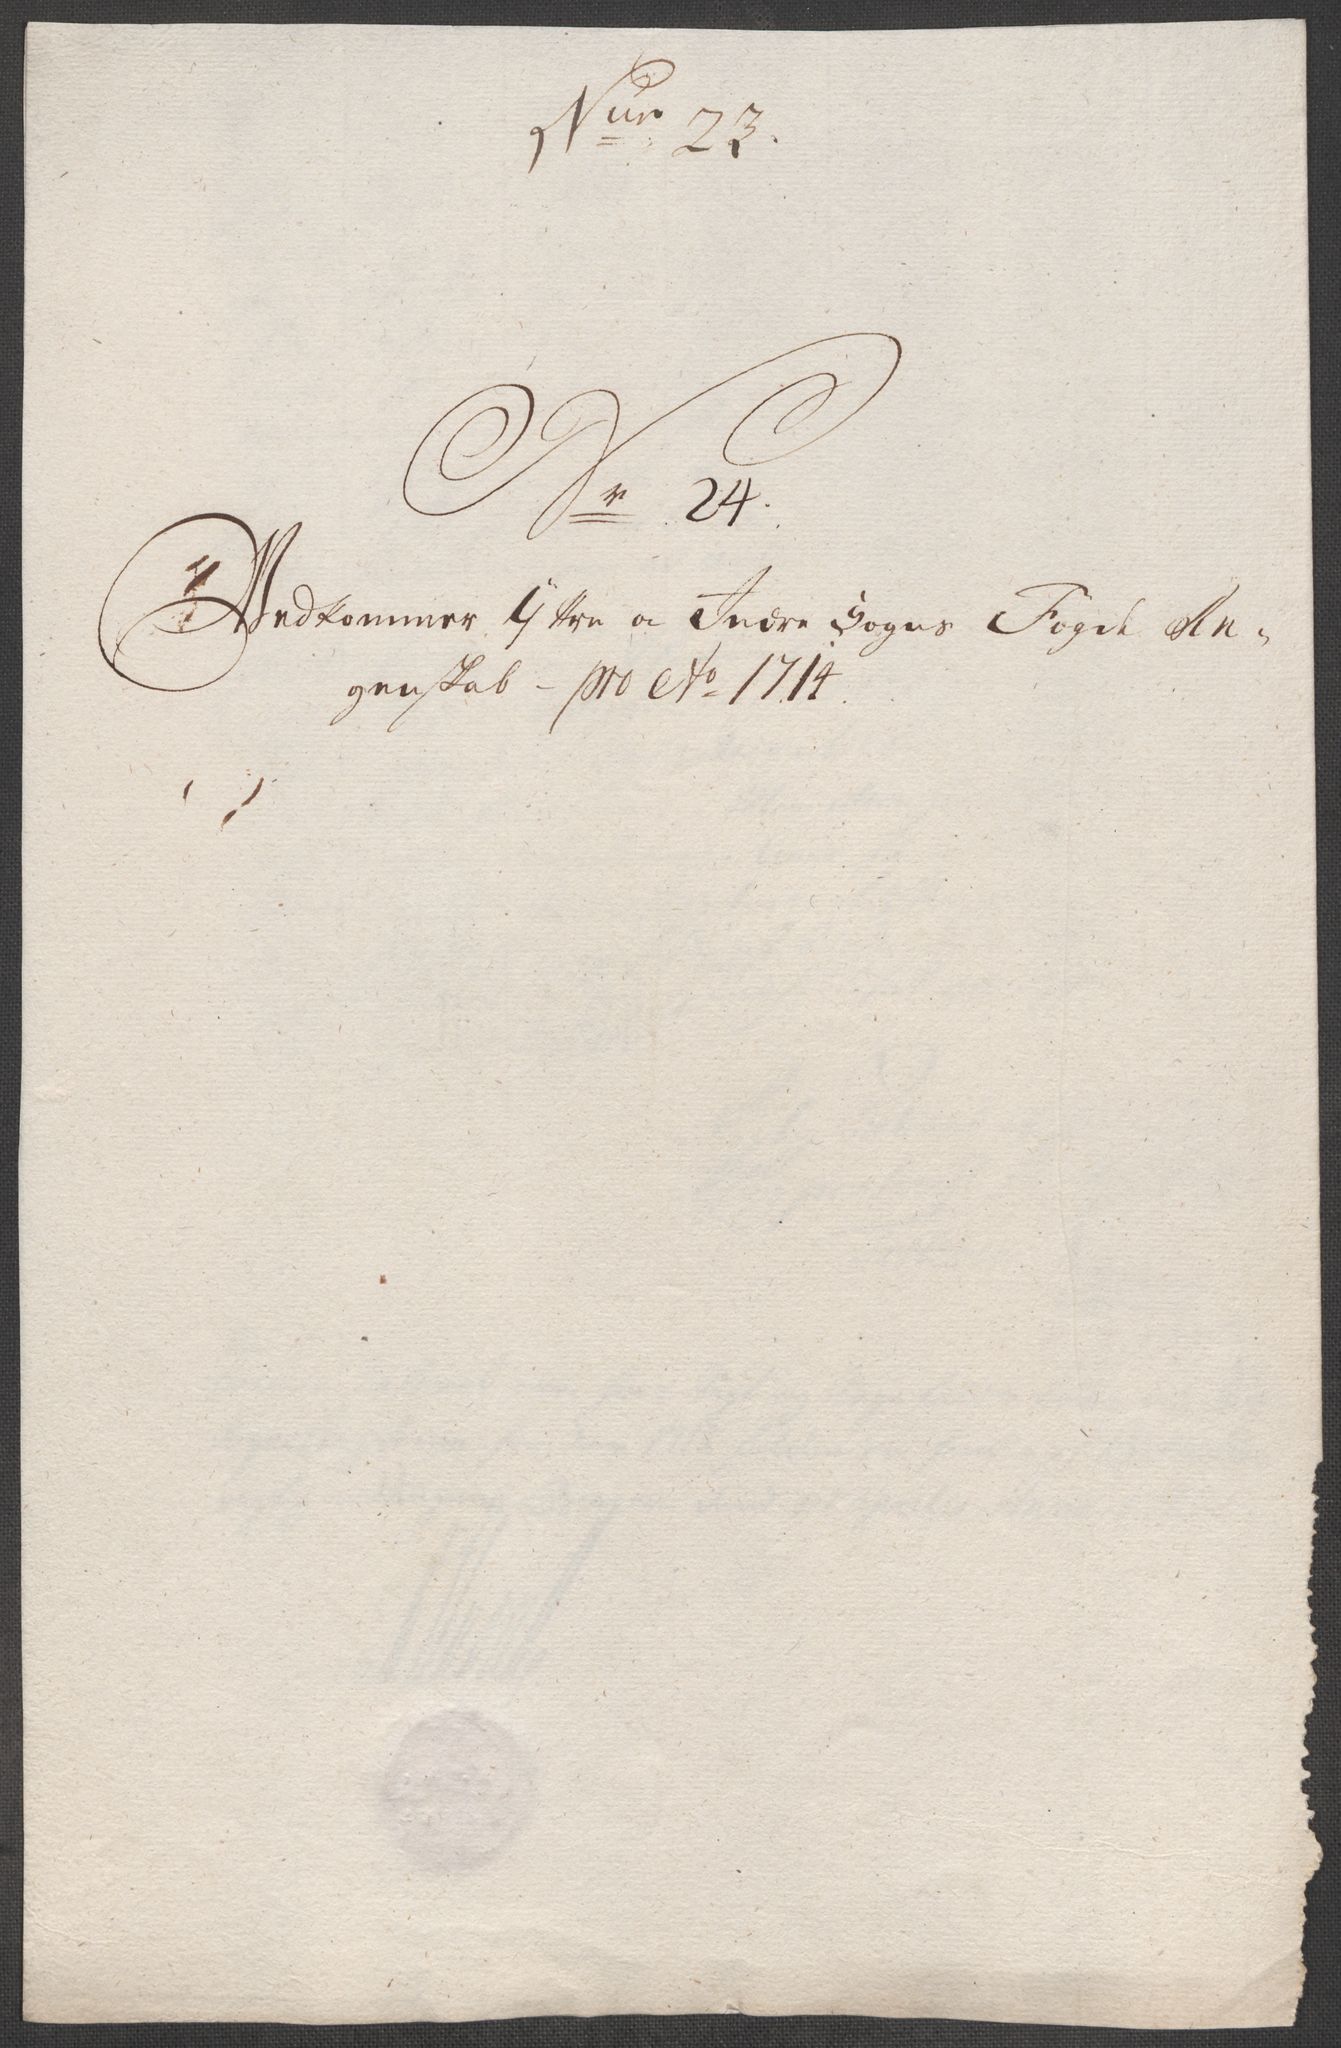 Nur 23.
Nr 24.
Vedkommer Yttre a Indre Sogns Fogde Re-
genskab - pro Ao 1714